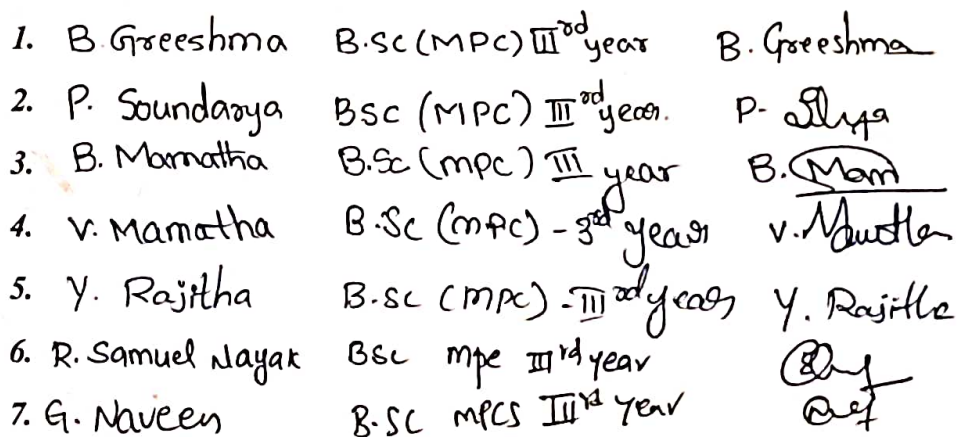 1. B. Greeshma B.Sc (MPC) IIIrd year B. Greeshma
2. P. Soundarya BSC (MPC) IIIrd year. P-
3. B. Mamatha B.Sc (mpc) III year B. Mam
4. V. Mamatha B.Sc (mpc) - 3rd year V.
5. Y. Rajitha B.sc (mpc) - IIIrd year Y. Rajitha
6. R. Samuel Nayak BSc mpc IIIrd year
7. G. Naveen B.SC MPCS IIIrd Year